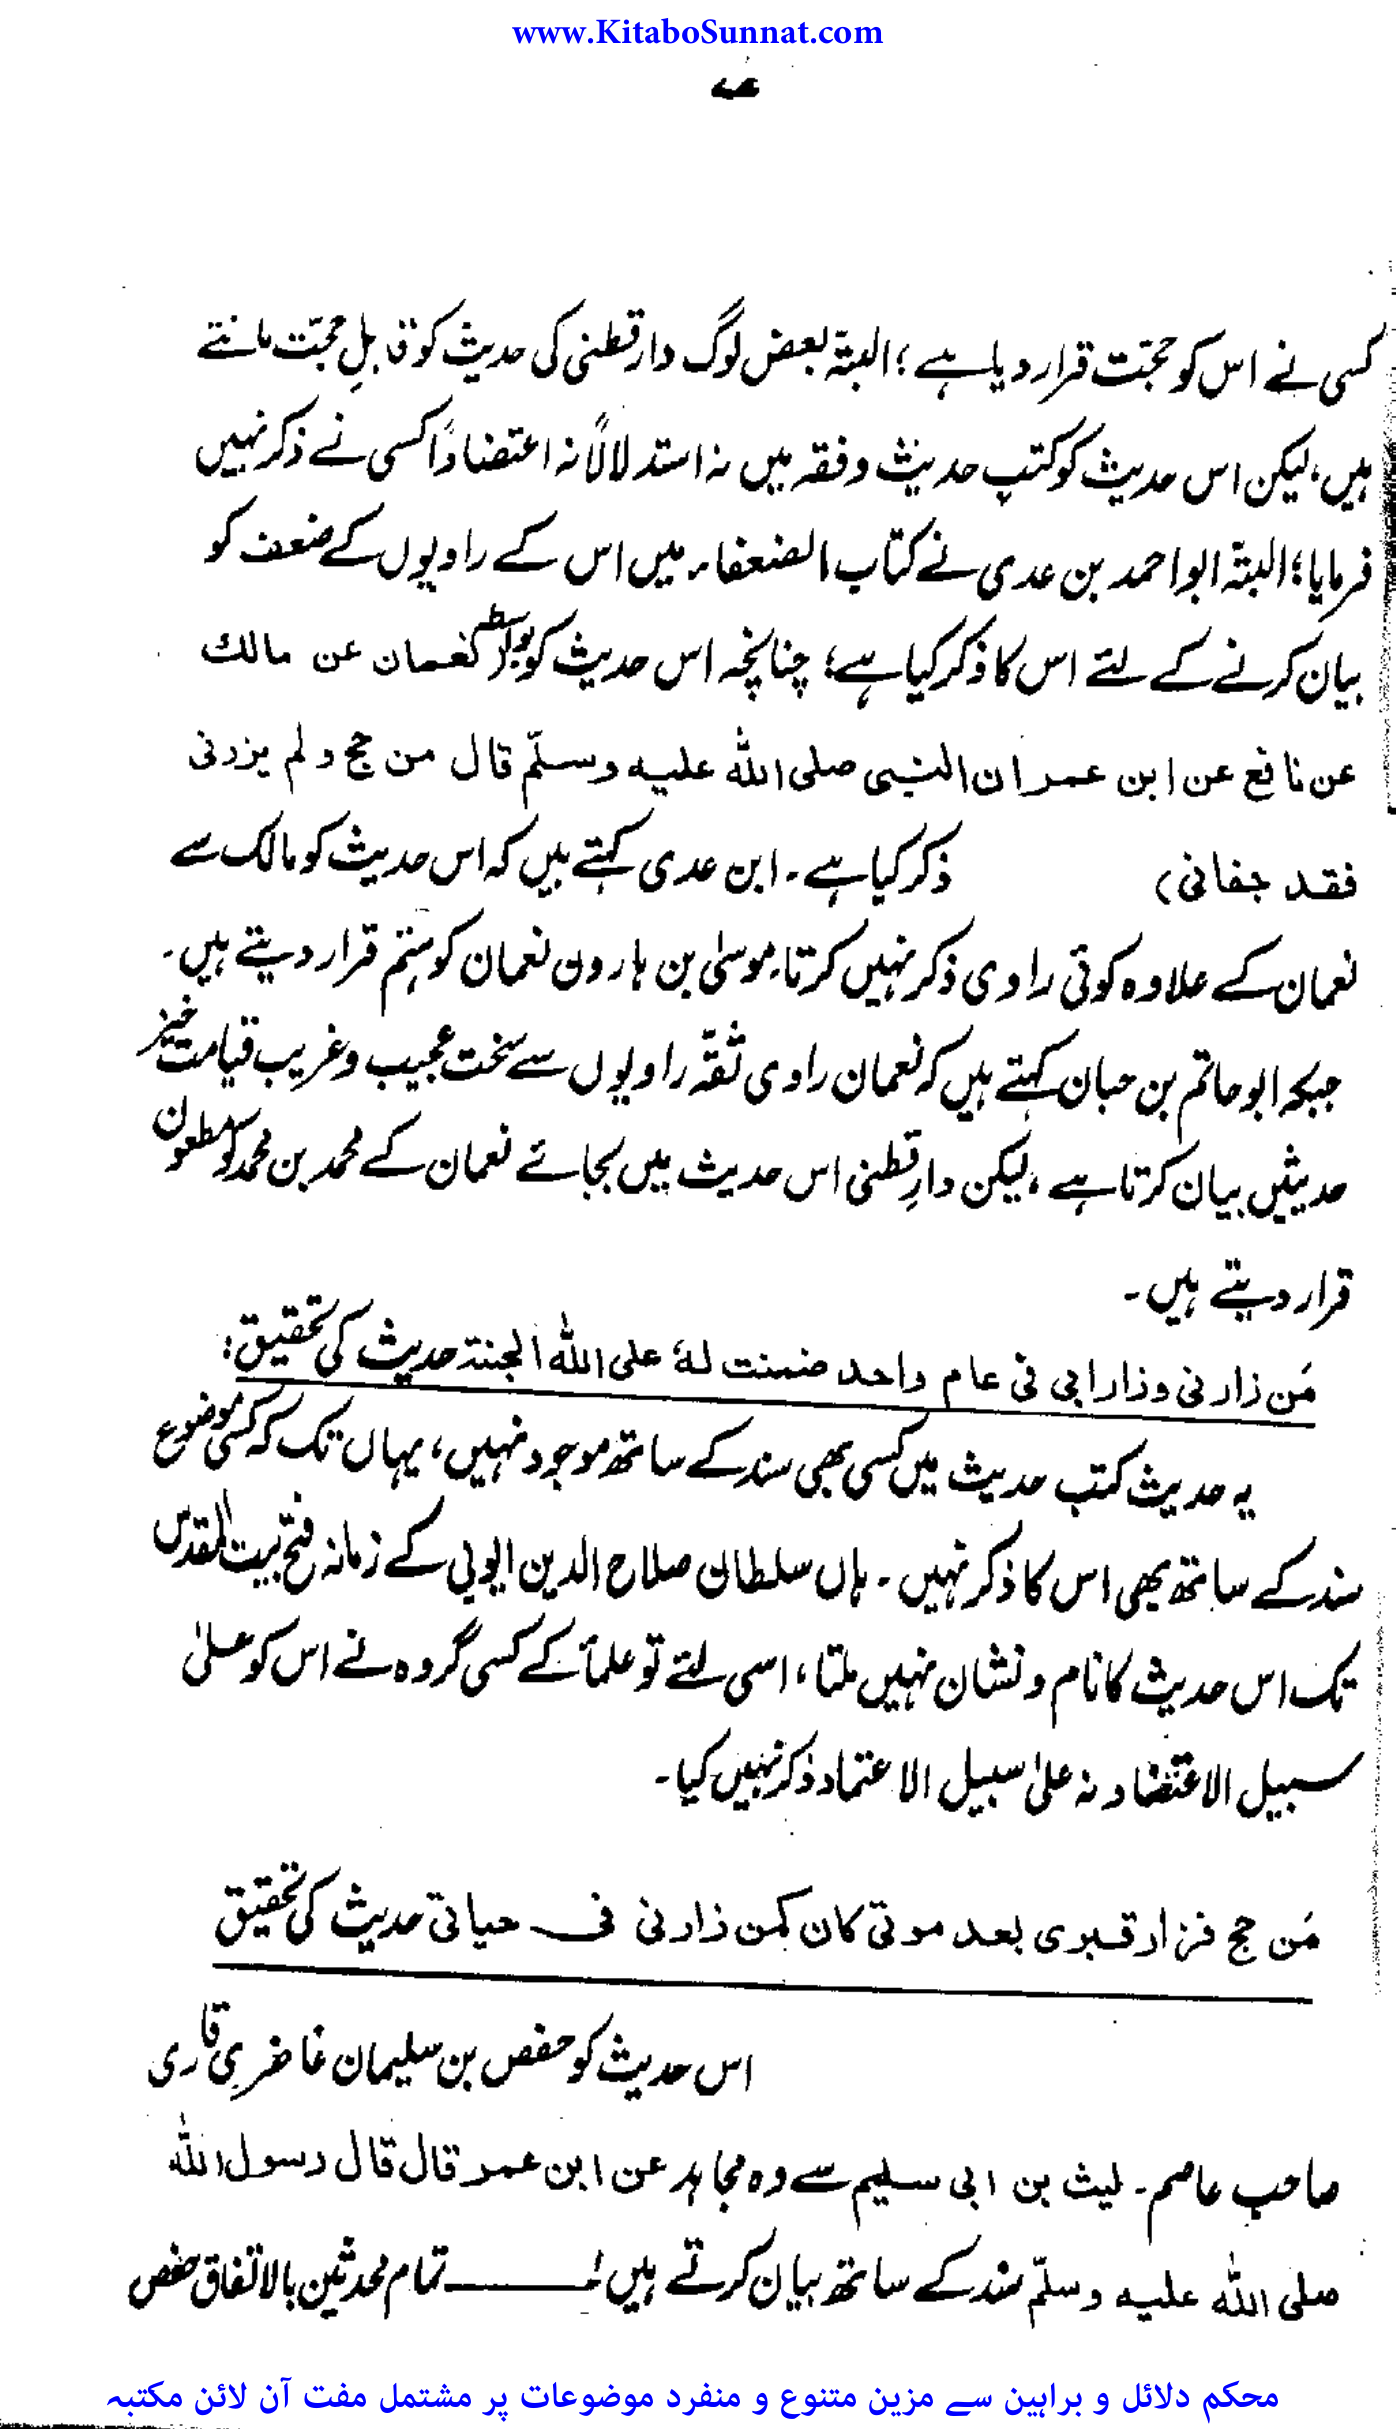 www.KitaboSunnat.com
کسی نے اس کو حجّت قرار دیا ہے؛ البتّہ بعض لوگ دارقطنی کی حدیث کو قابلِ حجّت مانتے
ہیں، لیکن اس حدیث کو کتبِ حدیث و فقہ میں نہ استدلالاً نہ اعتضاداً کسی نے ذکر نہیں
فرمایا؛ البتّہ ابو احمد بن عدی نے کتاب الضعفاء میں اس کے راویوں کے ضعف کو
بیان کرنے کے لئے اس کا ذکر کیا ہے؛ چنانچہ اس حدیث کو نعمان عن مالك
عن نافع عن ابن عمر ان النبی صلی اللہ علیہ وسلّم قال من حج ولم یزرنی
فقد جفانی) ذکر کیا ہے۔ ابن عدی کہتے ہیں کہ اس حدیث کو مالک سے
نعمان کے علاوہ کوئی راوی ذکر نہیں کرتا۔ موسیٰ بن ہارون نعمان کو متہم قرار دیتے ہیں۔
جبکہ ابو حاتم بن حبان کہتے ہیں کہ نعمان راوی ثقہّ راویوں سے سخت عجیب و غریب قیامت خیز
حدیثیں بیان کرتا ہے، لیکن دارِقطنی اس حدیث میں بجائے نعمان کے محمد بن محمد کو مطعون
قرار دیتے ہیں۔
مَن زارنی و زار ابی فی عام واحد ضمنت لہٗ علی اللہ الجنۃ حدیث کی تحقیق:
یہ حدیث کتبِ حدیث میں کسی بھی سند کے ساتھ موجود نہیں، یہاں تک کہ کسی موضوع
سند کے ساتھ بھی اس کا ذکر نہیں۔ ہاں سلطان صلاح الدین ایوبی کے زمانہ فتح بیت المقدس
تک اس حدیث کا نام و نشان نہیں ملتا، اسی لئے تو علمأ کے کسی گروہ نے اس کو علیٰ
سبیل الاعتضاد نہ علیٰ سبیل الاعتماد ذکر نہیں کیا۔
مَن حج فزار قبری بعد موتی کان کمن زارنی فی حیاتی حدیث کی تحقیق
اس حدیث کو حفص بن سلیمان غاضرِی قاری
صاحبِ عاصم۔ لیث بن ابی سلیم سے وہ مجاہد عن ابن عمر قال قال رسول اللہ
صلی اللہ علیہ وسلّم سند کے ساتھ بیان کرتے ہیں! تمام محدثین بالاتفاق حفص
محکم دلائل و براہین سے مزین متنوع و منفرد موضوعات پر مشتمل مفت آن لائن مکتبہ